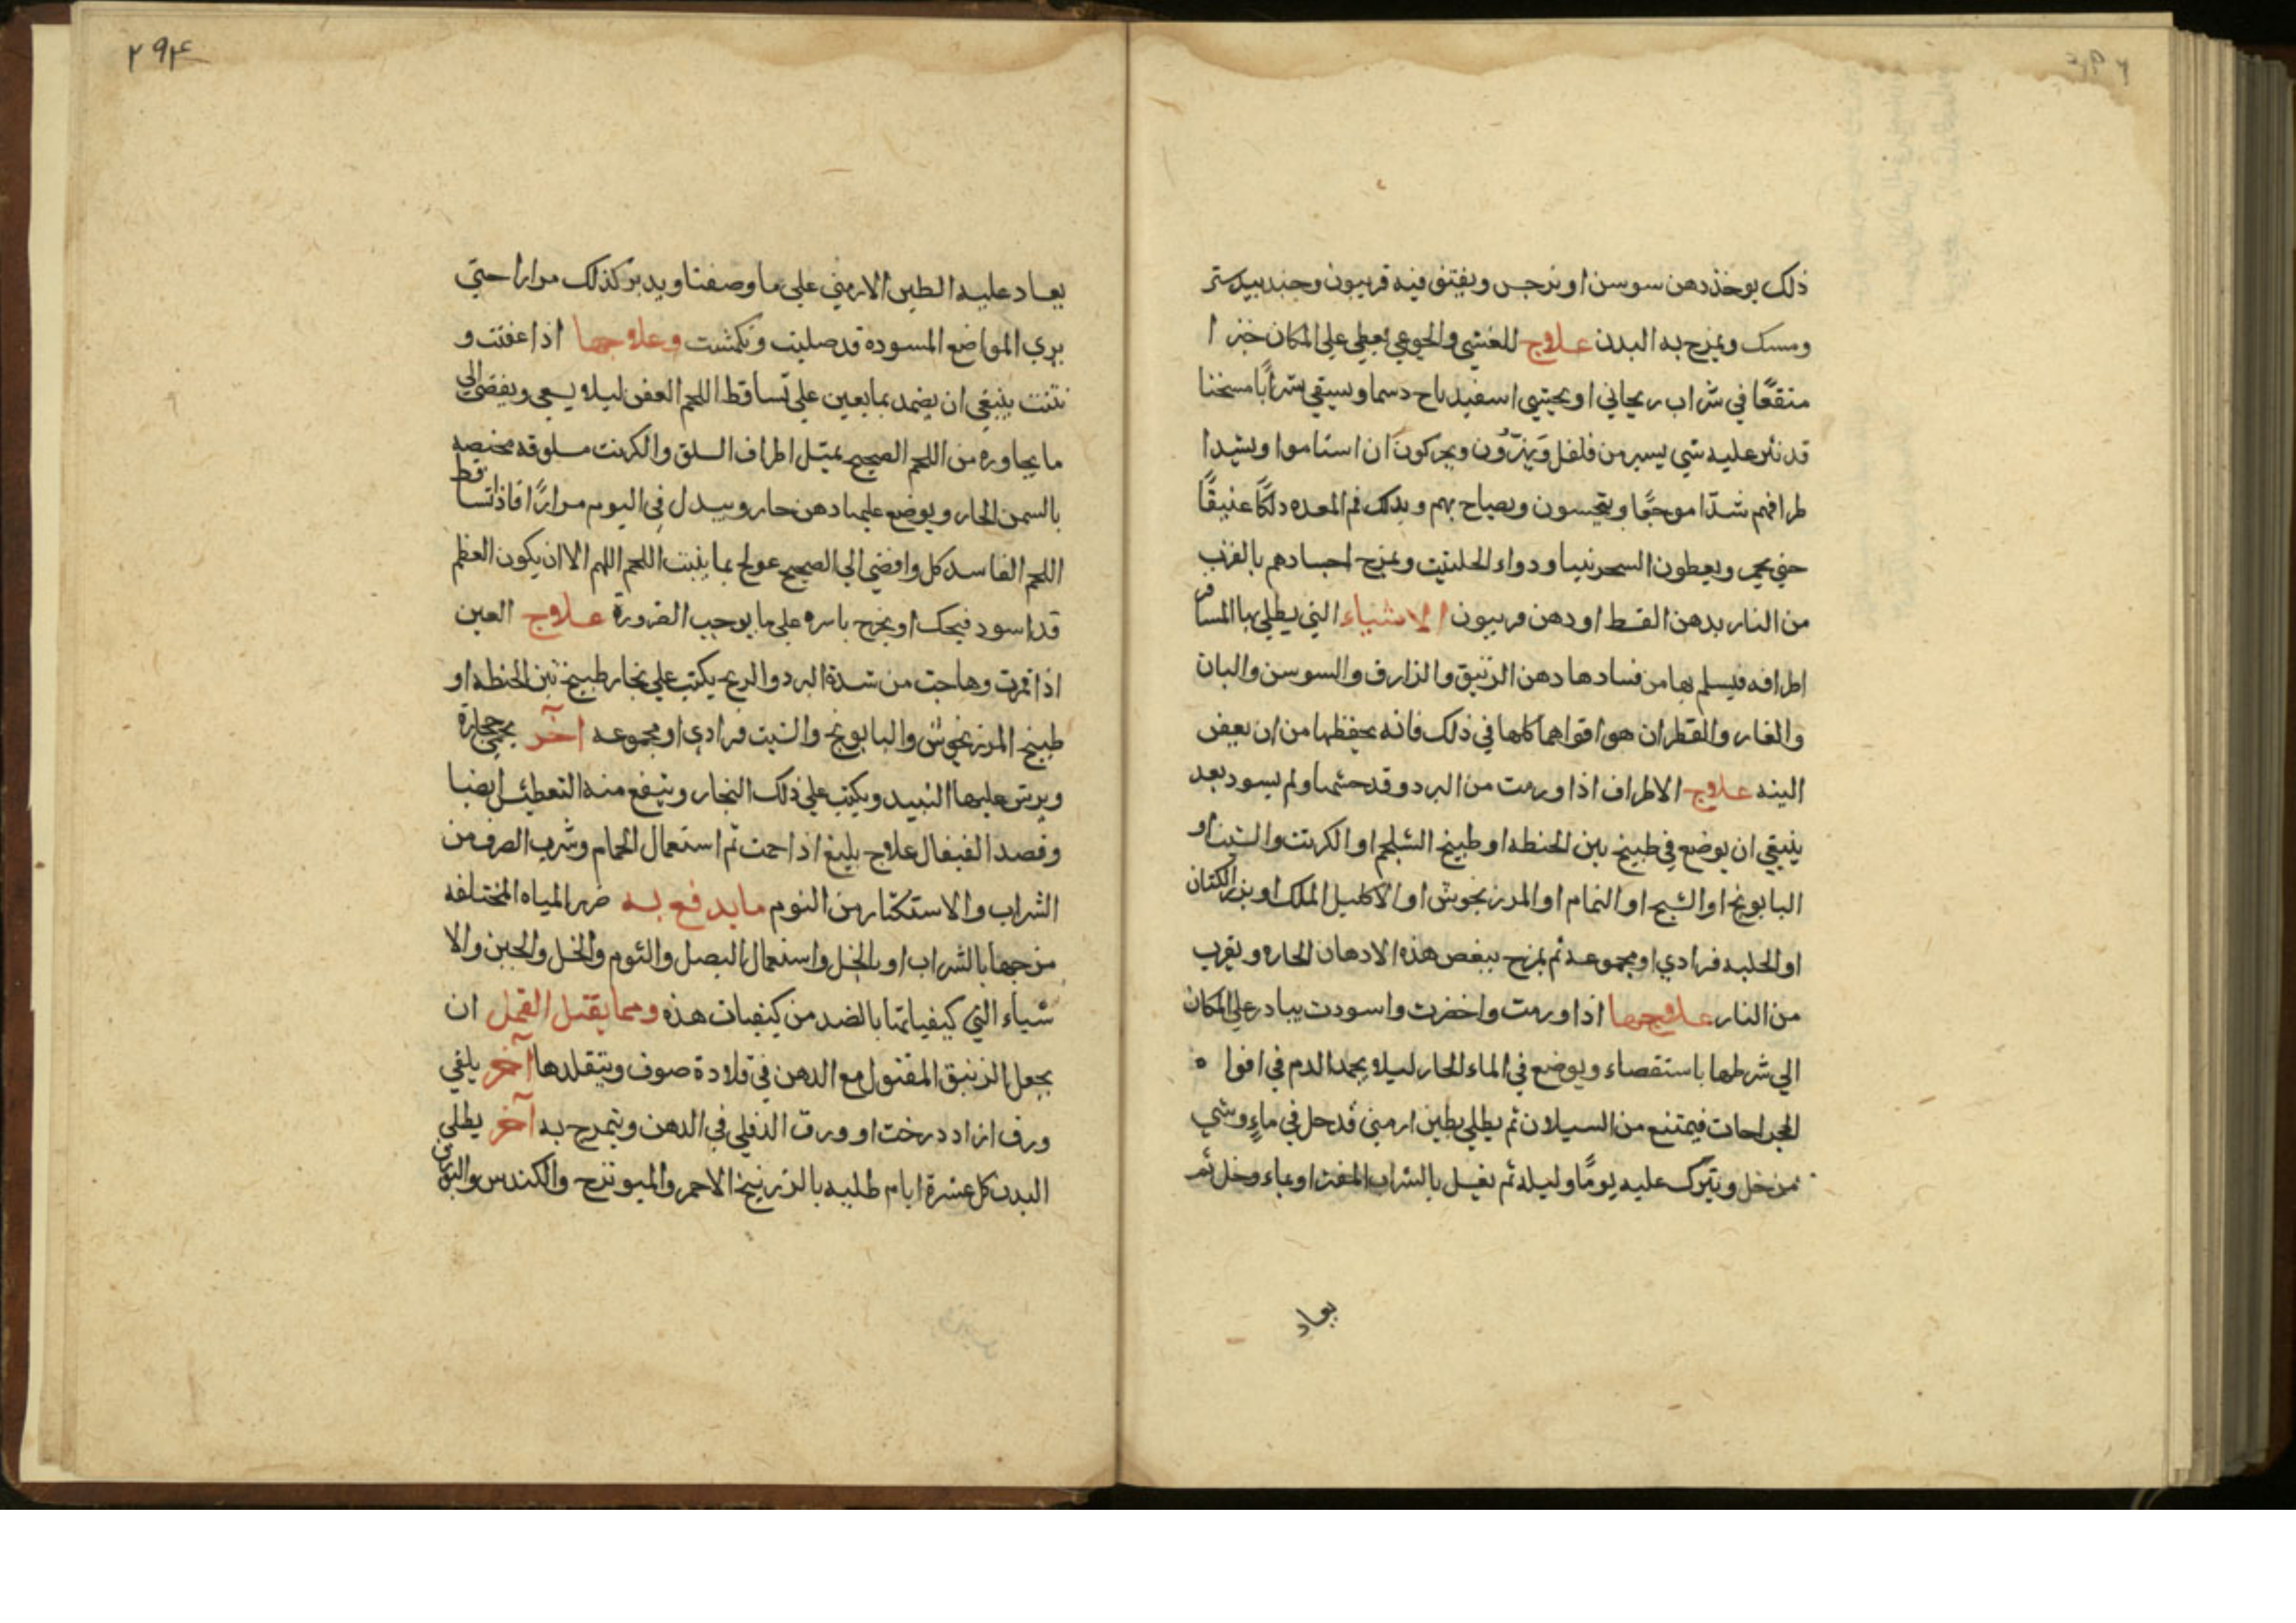 ذلك يوخذ دهن سوسن او نرجس ويفتق فيه فربيون وجندبيدستر
ومسك ويمزج به البدن علاج للغشي والجوعي يعطي علي المكان خبزا
منقعًا في شراب ريحاني او يحتسي اسفيدباج دسما ويسقي شرابًا مسخنا
قد نثر عليه شي يسير من فلفل ويحركون ان استاموا ويشد ا
طرافهم شدّا موجبًا وينحسون ويصاح بهم ويدلك فم المعده دلكًا عنيفًا
حتي يحمر ويعطون السجرنيا ودواء الحلتيت ويمزج اجسادهم بالقرب
من النار بدهن القسط او دهن فربيون الاشياء التي يطلي بها المسافر
اطرافه فيسلم بها من فسادها دهن الزنبق والرازقي والسوسن والبان
والغار والقطران هو اقواهما كلها في ذلك فانه يحفظها من ان يعفن
البته علاج الاطراف اذا ورمت من البرد وقد خشما ولم يسود بعد
ينبغي ان يوضع في طبيخ تبن الحنطه او طبيخ الشلجم او الكرنب والشبث او
البابونج او الشيح او النمام او المرزنجوش او الاكليل الملك او بزر الكتان
او الحلبه فرادي او مجموعه ثم يمزج ببعض هذه الادهان الحاره ويقرب
من النار علاجها اذا ورمت واخضرت واسودت يبادر علي المكان
الي شرطها باستقصاء ويوضع في الماء الحار ليلا يجمد الدم في افواه
الجراحات فيمتنع من السيلان ثم يطلي بطين ارمني قد حل في ماءٍ وشي
من خل ويترك عليه يومًا وليله ثم يغسل بالشراب المفتر او بماء وخل ثم
يعاد
٢٩٤
يعاد عليه الطين الارمني علي ما وصفنا ويدبر كذلك مرارا حتي
يري المواضع المسوده قد صلبت وتكمشت وعلاجها اذا عفنت و
نتنت ينبغي ان يضمد بما يعين علي تساقط اللحم العفن ليلا يسعي ويفضي الي
ما يجاوره من اللحم الصحيح بمثل اطراف السلق والكرنب مسلوقه مخبصه
بالسمن الحار ويوضع عليها دهن حار ويبدل في اليوم مرارًا فاذا تساقط
اللحم الفاسد كل وافضي الي الصحيح عولج بما ينبت اللحم اللهم الا ان يكون العظم
قد اسود فيحك او يخرج باسره علي ما يوجب الضرورة علاج العين
اذا قمرت وهاجت من شدة البرد والريح يكب علي بخار طبيخ تبن الحنطه او
طبيخ المرزنجوش والبابونج والشبت فرادي او مجموعه آخر يحمي حجارة
ويرش عليها النبيد ويكب علي ذلك البخار وينفع منه التعطيس ايضا
وفصد القيفال علاج بليغ اذا احمت ثم استعمال الحمام وشرب الصرف من
الشراب والاستكثار من النوم ما يدفع به ضرر المياه المختلفه
مزجها بالشراب او بالخل واستعمال البصل والثوم والخل والجبن والا
شياء التي كيفياتها بالضد من كيفيات هذه ومما يقتل القمل ان
يجعل الزئبق المقتول مع الدهن في قلادة صوف ويتقلدها آخر يلقي
ورق ازاد درخت او ورق الدفلي في الدهن ويتمرخ به آخر يطلي
البدن كل عشرة ايام طليه بالزرنيخ الاحمر والميويزج والكندس والبورق